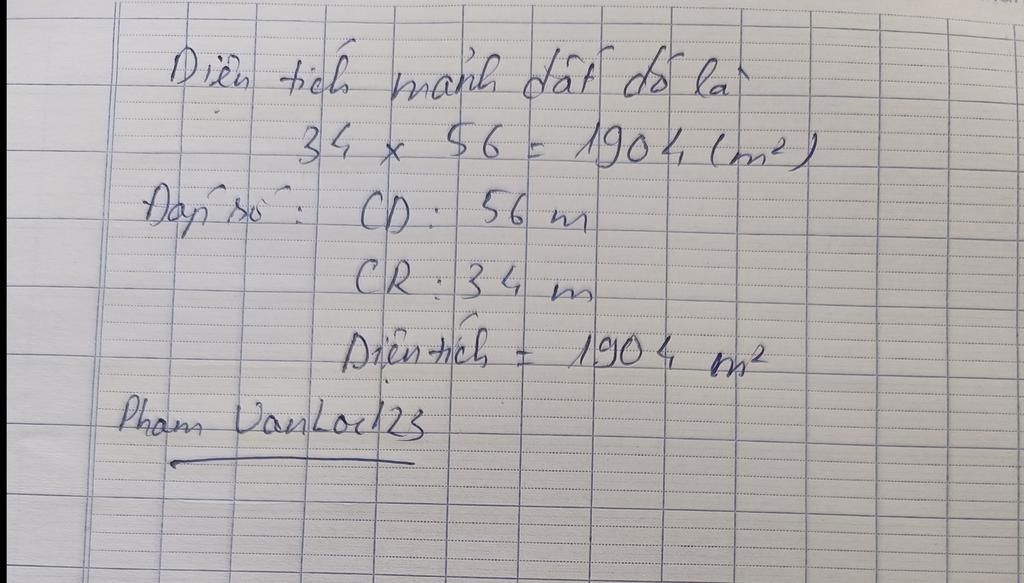 Diện tích mảnh đất đó là
34 x 56 = 1904 (m²)
Đáp số: CD: 56 m
CR: 34 m
Diện tích = 1904 m²
Pham VanLoc123